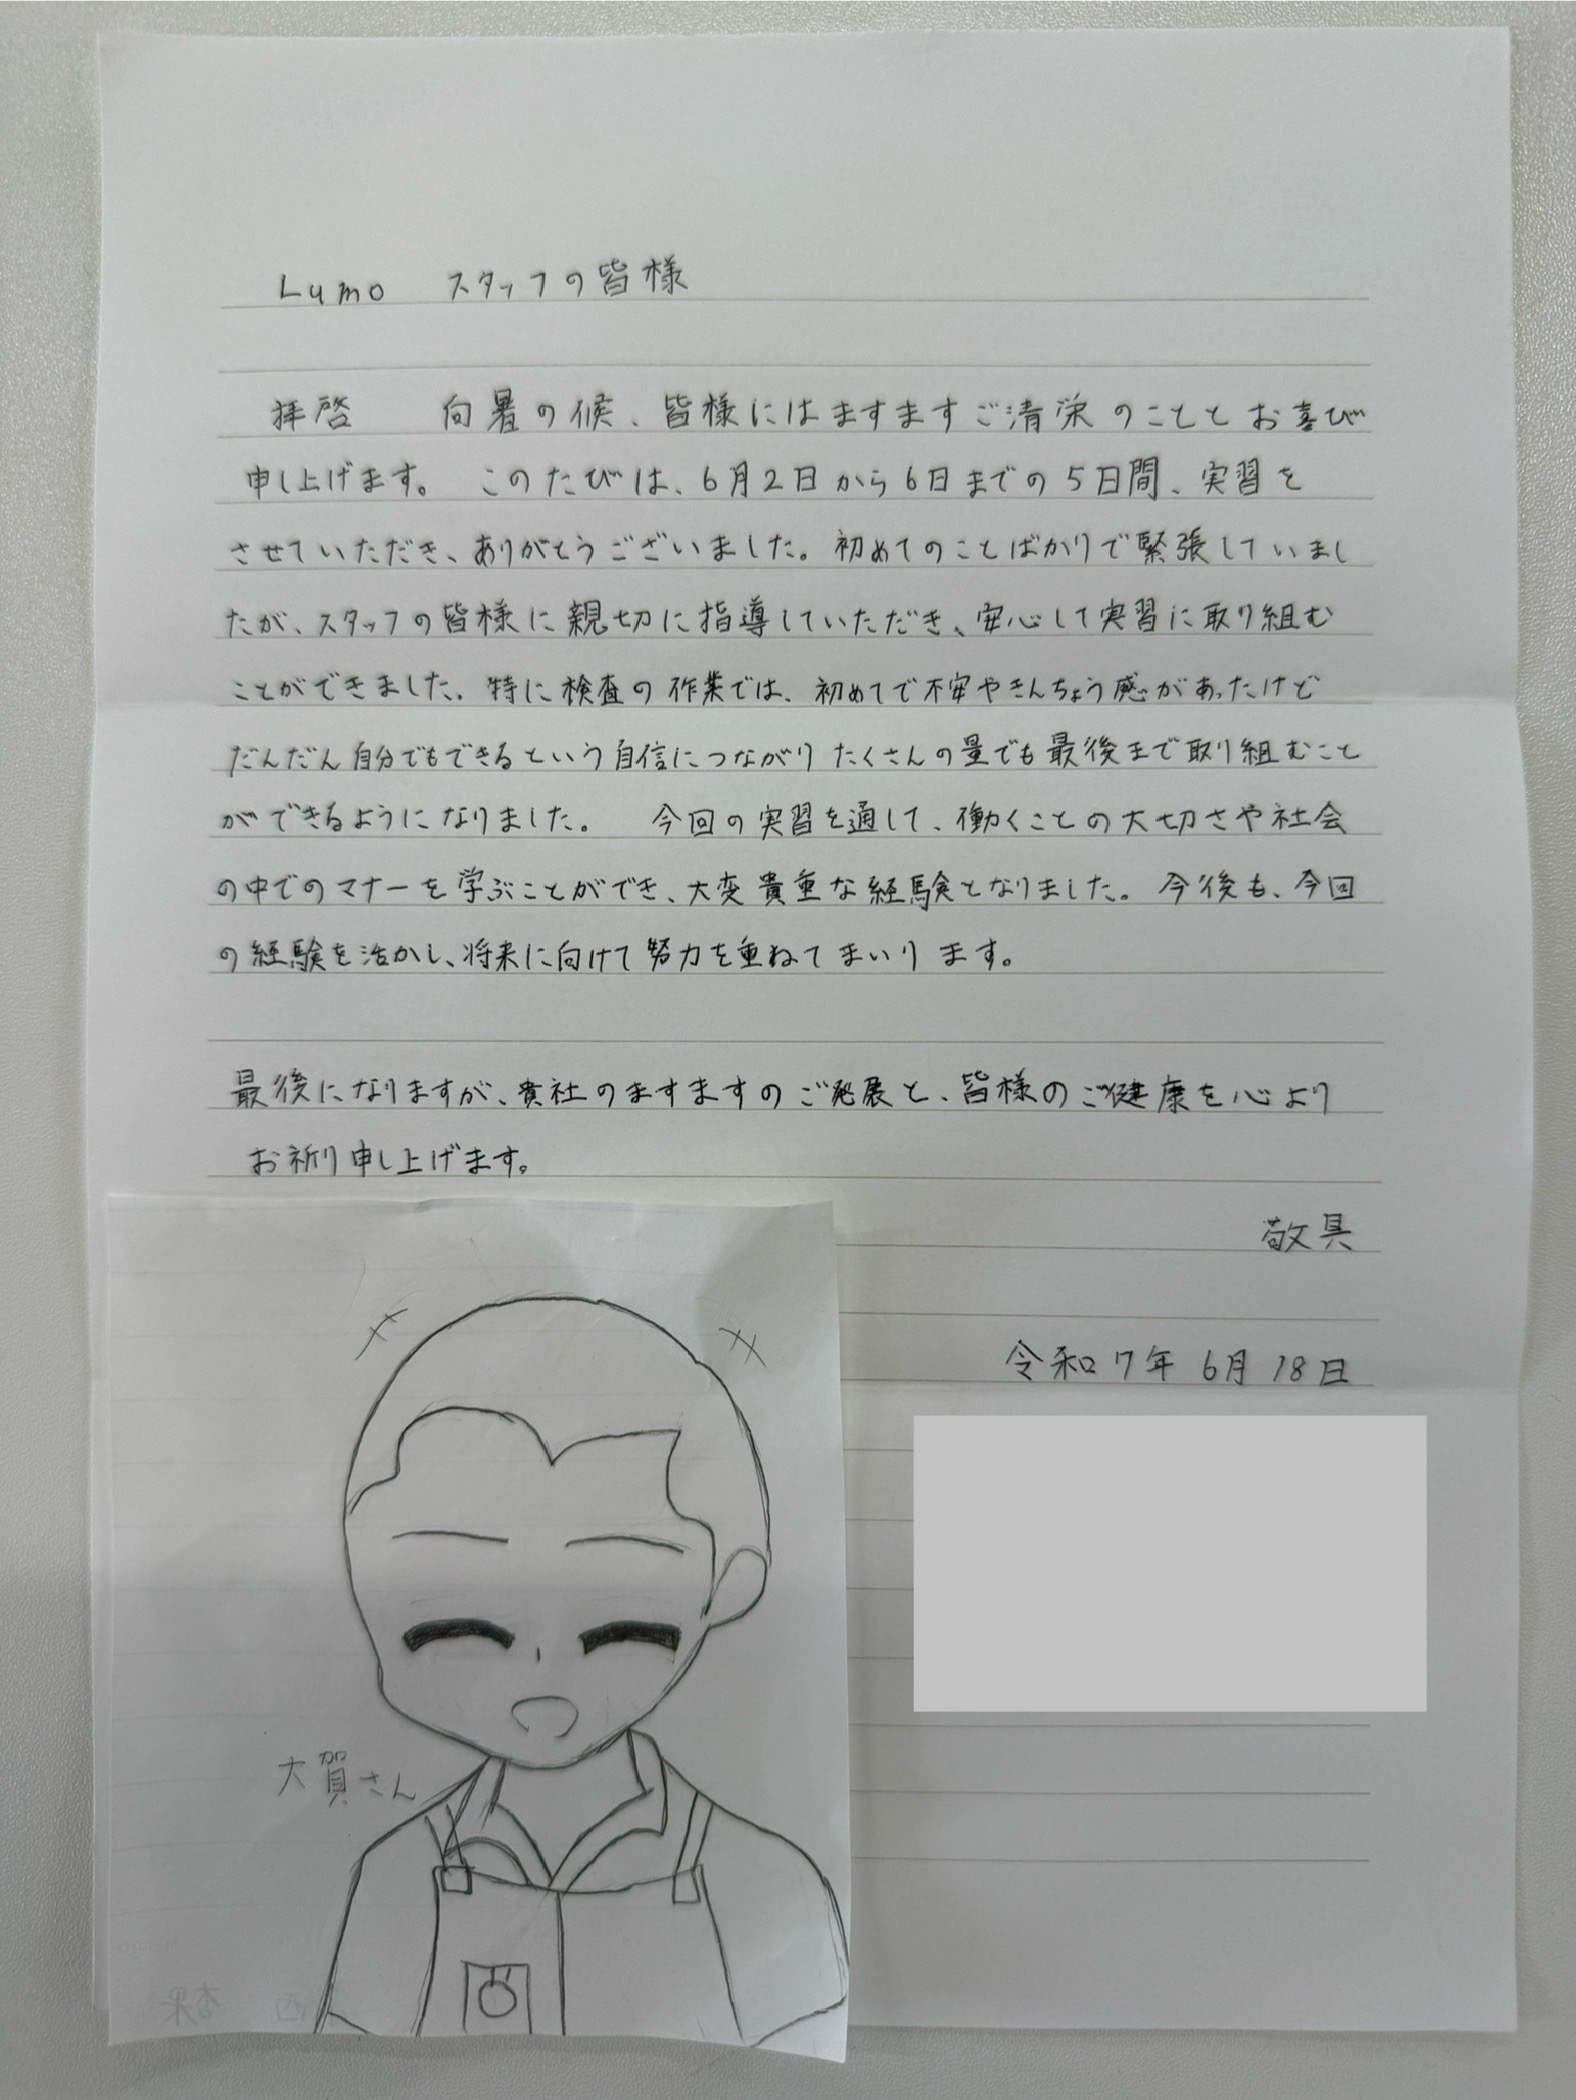 Lumo スタッフの皆様
拝啓 向暑の候、皆様にはますますご清栄のこととお喜び
申し上げます。 このたびは、6月2日から6日までの5日間、実習を
させていただき、ありがとうございました。初めてのことばかりで緊張していまし
たが、スタッフの皆様に親切に指導していただき、安心して実習に取り組む
ことができました。特に検査の作業では、初めてで不安やきんちょう感があったけど
だんだん自分でもできるという自信につながりたくさんの量でも最後まで取り組むこと
ができるようになりました。 今回の実習を通して、働くことの大切さや社会
の中でのマナーを学ぶことができ、大変貴重な経験となりました。今後も、今回
の経験を活かし、将来に向けて努力を重ねてまいります。
最後になりますが、貴社のますますのご発展と、皆様のご健康を心より
お祈り申し上げます。
敬具
令和7年6月18日
大賀さん